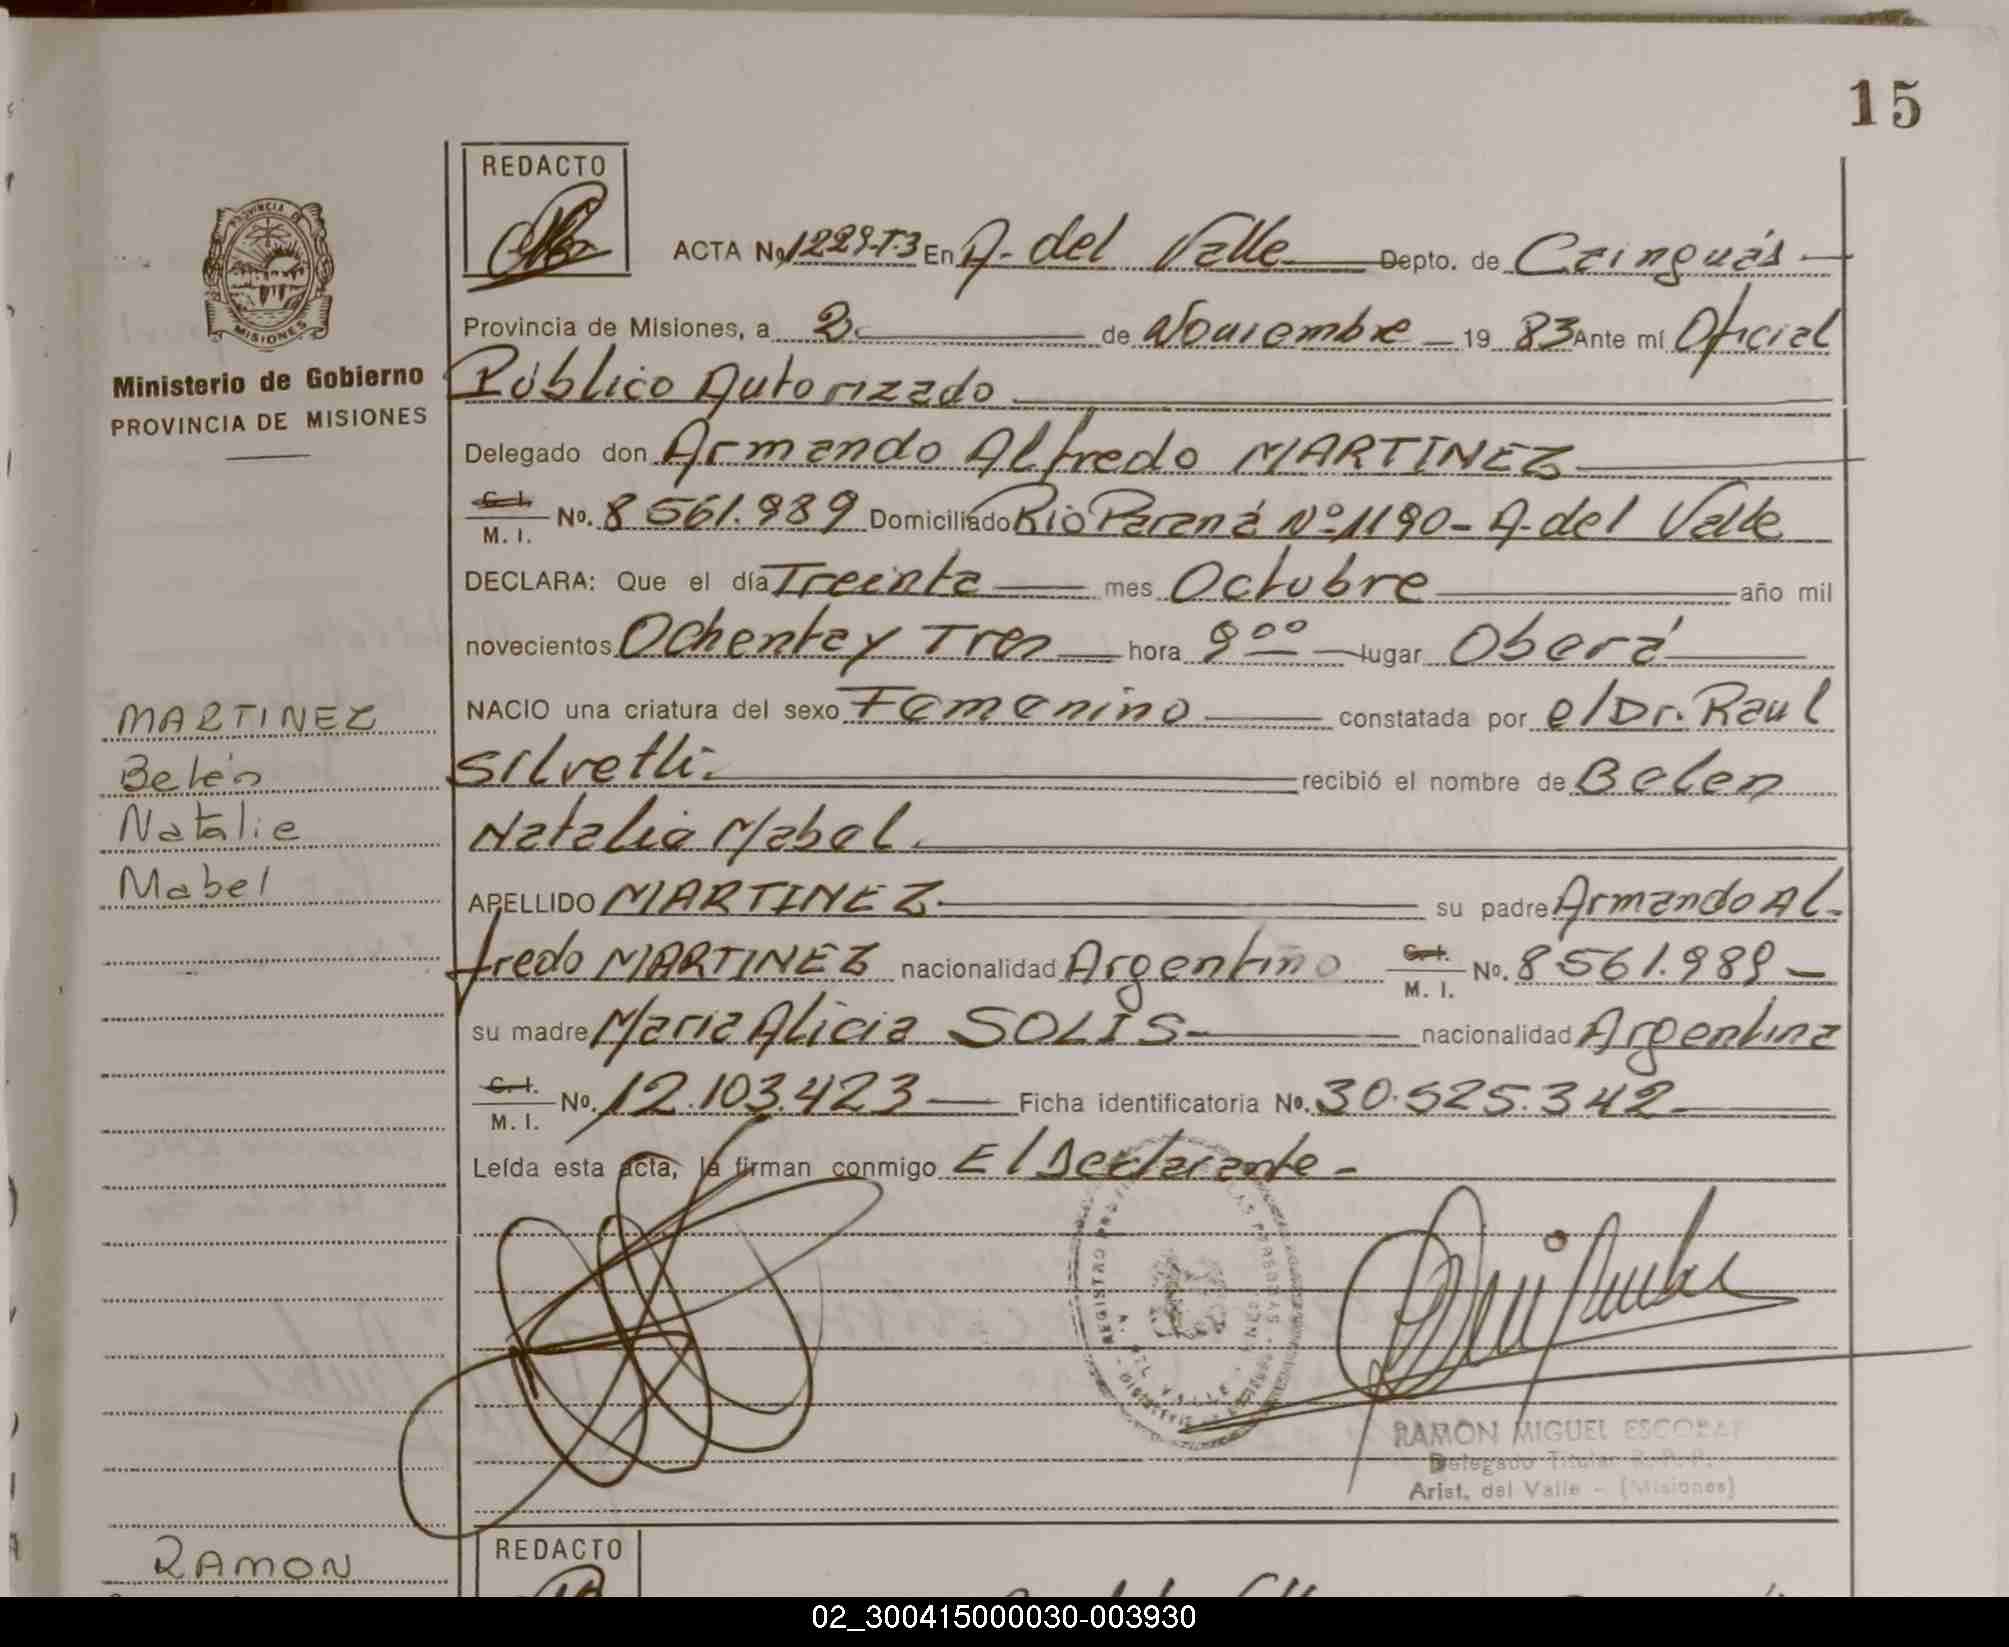 15
REDACTO
PROVINCIA DE
MISIONES
Ministerio de Gobierno
PROVINCIA DE MISIONES
ACTA No 1229-T3 En A. del Valle Depto. de Cainguás
Provincia de Misiones, a 2 de Noviembre 19 83 Ante mí Oficial
Público Autorizado
Delegado don Armando Alfredo MARTINEZ
C. I. M. I. No. 8561.989 Domiciliado Rio Paraná Nº 1190 - A. del Valle
DECLARA: Que el día Treinta mes Octubre año mil
novecientos Ochenta y Tres hora 9 00 lugar Oberá
NACIO una criatura del sexo Femenino constatada por el Dr. Raul
Silvetti. recibió el nombre de Belen
Natalia Mabel.
MARTINEZ
Belén
Natalie
Mabel
APELLIDO MARTINEZ su padre Armando Al-
fredo MARTINEZ nacionalidad Argentino C. I. M. I. No. 8561.989
su madre Maria Alicia SOLIS nacionalidad Argentina
C. I. M. I. No. 12.103.423 Ficha identificatoria No. 30.525.342
Leída esta acta, la firman conmigo El Declarante -
RAMON MIGUEL ESCOBAR
Delegado Titular R. P. P.
Arist. del Valle - (Misiones)
REDACTO
RAMON
02_300415000030-003930